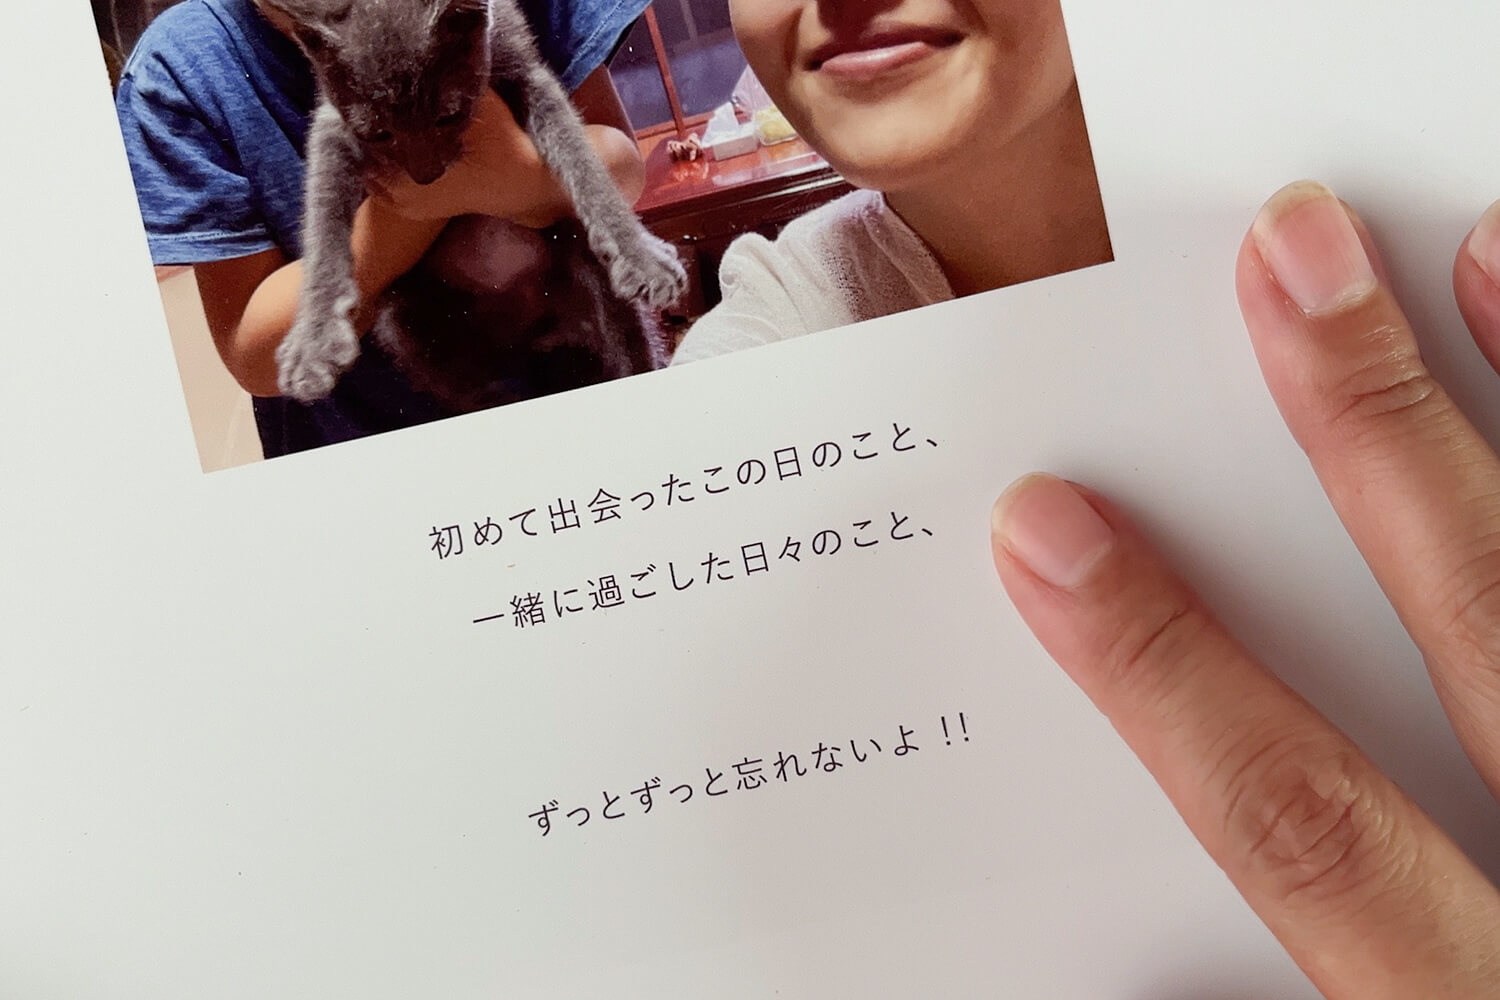 初めて出会ったこの日のこと、
一緒に過ごした日々のこと、
ずっとずっと忘れないよ !!